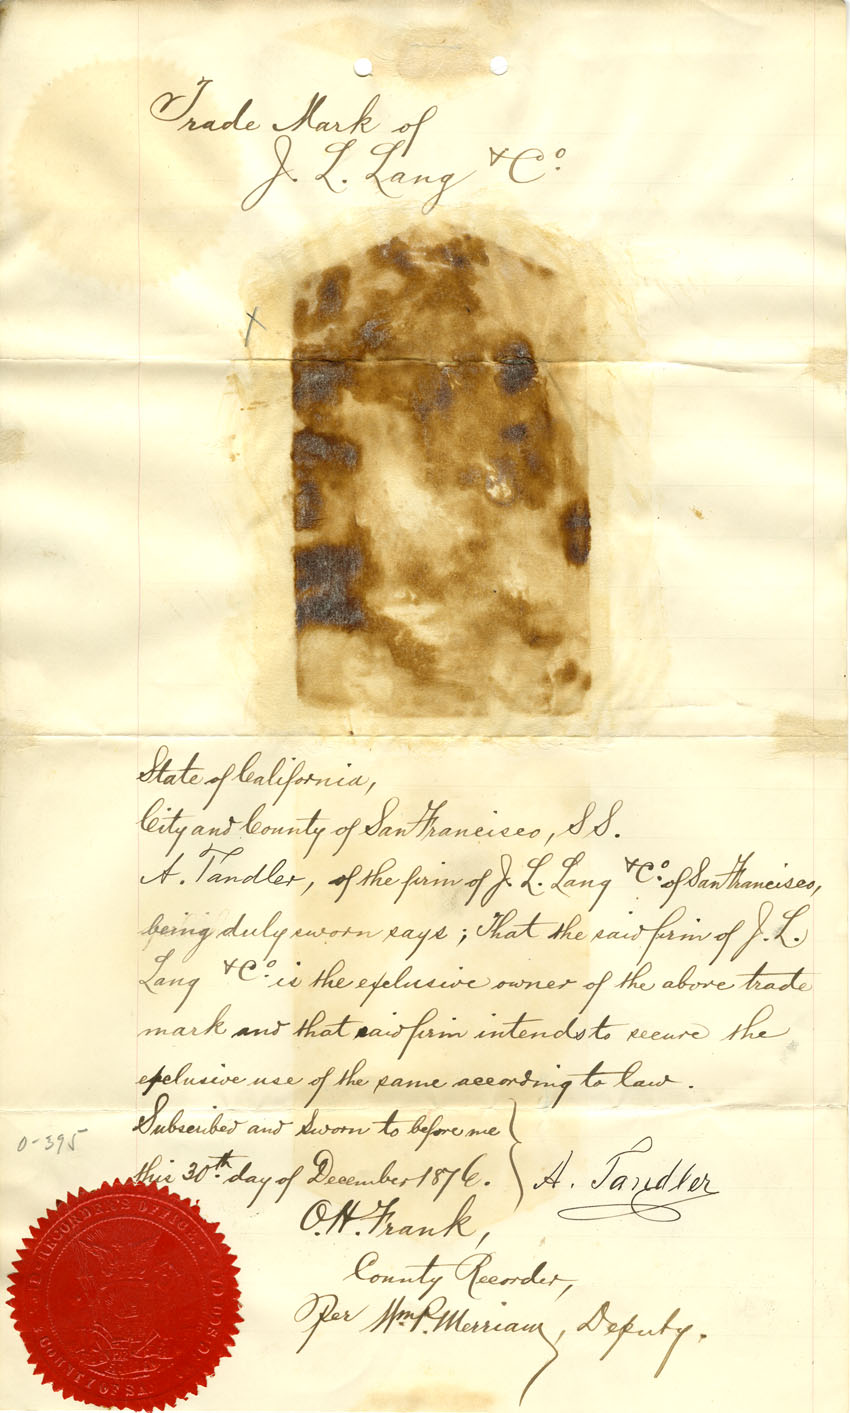 Trade Mark of
J. L. Lang & Co.
X
State of California,
City and County of San Francisco, SS.
A. Tandler, of the firm of J. L. Lang & Co. of San Francisco,
being duly sworn says; That the said firm of J. L.
Lang & Co. is the exclusive owner of the above trade
mark and that said firm intends to secure the
exclusive use of the same according to law.
Subscribed and Sworn to before me
this 30th day of December 1876.
A. Tandler
O. H. Frank,
County Recorder,
Per Wm. P. Merriam, Deputy.
0-395
RECORDER'S OFFICE
COUNTY OF SAN